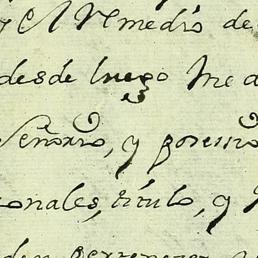 y el Remedio de
desde luego me a
Señorio, y posessio
onales, titulo, y